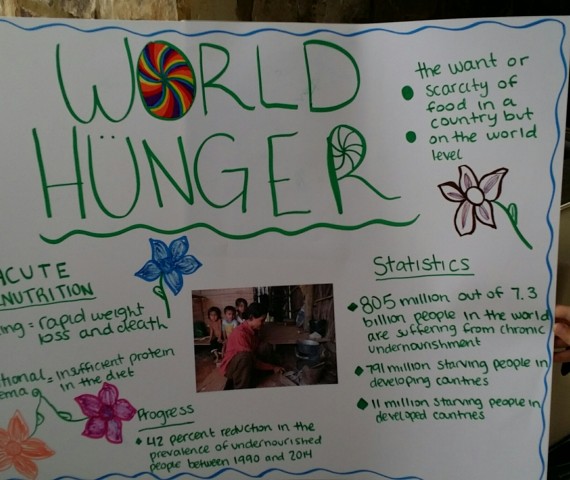 WORLD
HÜNGER
the want or
scarcity of
food in a
country but
on the world
level
ACUTE
NUTRITION
ing = rapid weight
loss and death
tional = insufficient protein
ema in the diet
Progress
42 percent reduction in the
prevalence of undernourished
people between 1990 and 2014
Statistics
805 million out of 7.3
billion people in the world
are suffering from chronic
undernourishment
791 million starving people in
developing countries
11 million starving people in
developed countries